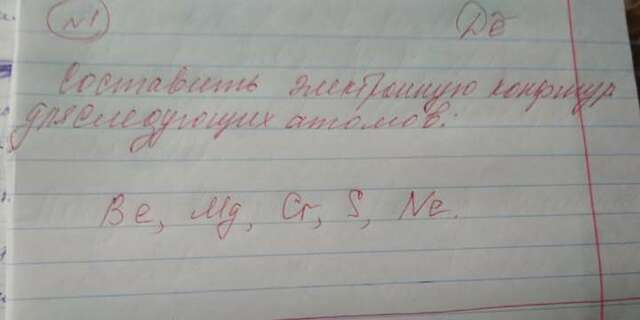 N1
Дз
Составить электронную конфигур
для следующих атомов:
Be, Mg, Cr, S, Ne.